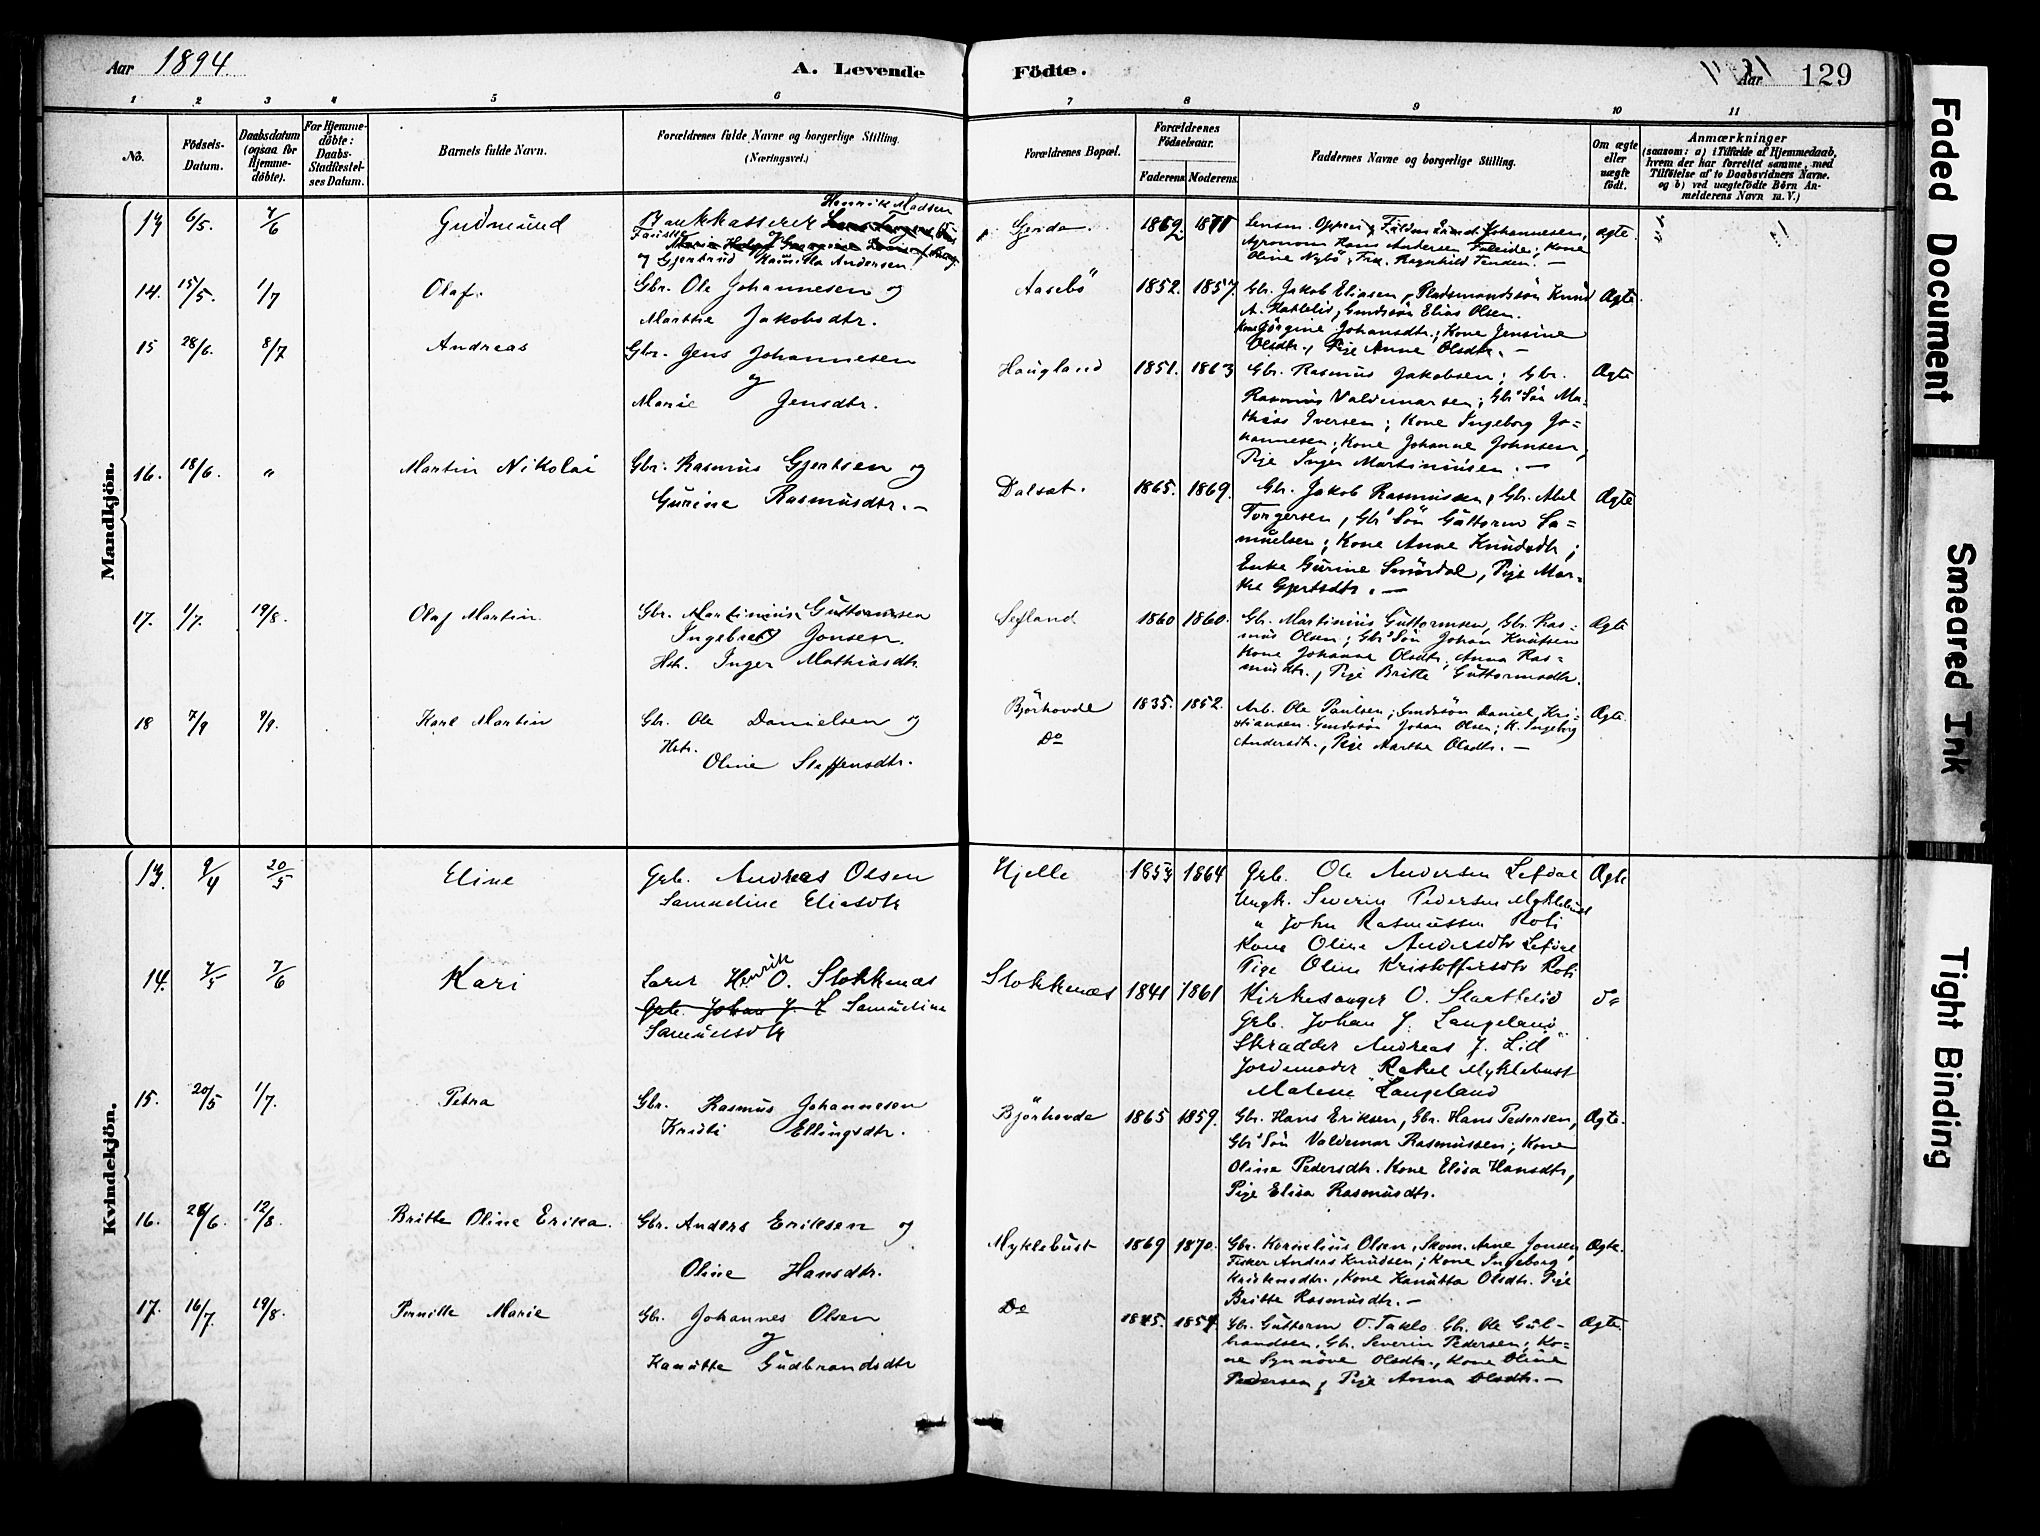 Aar 1894.
A. Levende
Födte.
Aar
129
1 2 3 4 5 6 7 8 9 10 11
No.
Födsels-
Datum.
Daabsdatum
(ogsaa for
Hjemme-
döbte).
For Hjemme-
döbte:
Daabs-
Stadfæstel-
ses Datum.
Barnets fulde Navn.
Forældrenes fulde Navne og borgerlige Stilling.
(Næringsvei.)
Forældrenes Bopæl.
Forældrenes
Födselsaar.
Faderens Moderens
Faddernes Navne og borgerlige Stilling.
Om ægte
eller
uægte
födt.
Anmærkninger
(saasom: a) i Tilfælde af Hjemmedaab,
hvem der har forrettet samme, med
Tilföielse af to Daabsvidners Navne.
og b) ved uægtefödte Börn An-
melderens Navn m. V.)
Mandkjön.
13 6/5 7/6 Gudmund
Henrik Madsen
Bankkasserer
og Gjertrud Kamilla Andersen
1862 1871
Johannesen,
Agronom Hans Andersen Faleide; Kone
ægte.
14. 15/5. 1/7 Olaf.
Gbr. Ole Johannesen og
Marthe Jakobsdtr.
Aasebö 1852. 1857.
Gbr. Jakob Eliasen, Pladsmandssön Knud
A. Kattelid, Grndssön Elias Olsen.
Kone Jörgine Johansdtr.; Kone Jensine
Olsdtr., Pige Anne Olsdtr. —
Ægte
15 28/6. 8/7 Andreas
Gbr. Jens Johannesen
og
Marie Jensdtr.
Haugland 1851. 1863
Gbr. Rasmus Jakobsen; Gbr.
Rasmus Valdemarsen; Gbr Sön Ma-
thias Iversen; Kone Ingeborg Jo-
hannesen; Kone Johanne Johnsen,
Pige Inger Martinusen. —
Ægte
16. 18/6. " Martin Nikolai
Gbr. Rasmus Gjertsen og
Gurine Rasmusdtr. —
Dalsat. 1865. 1869.
Gbr. Jakob Rasmussen, Gbr. Abel
Torgersen, Gbr Sön Guttorm Sa-
muelsen; Kone Anne Knudsdtr;
Enke Gurine Smördal, Pige Mar-
the Gjertsdtr. —
Ægte
17. 1/7. 19/8. Olaf Martin
Gbr. Martinius Guttormsen
Ingebret Jonsen.
Hstr. Inger Mathiasdtr.
Sefland 1860 1860.
Gbr. Martinius Guttormsen, Gbr. Ras-
mus Olsen; Gbr Sön Johan Knutsen
Kone Johanne Olsdtr; Anna Ras-
musdtr., Pige Britte Guttormsdtr.
Ægte
18 7/9 9/9. Karl Martin
Gbr. Ole Danielsen og
Hstr.
Oline Steffensdtr.
Björhovde
Do
1835. 1852.
Arb. Ole Paulsen; Grndssön Daniel Kri-
stiansen. Grndssön Johan Olsen; K. Ingeborg
Andersdtr., Pige Marthe Olsdtr. —
Ægte.
Kvindekjön.
13. 9/4 20/5 Eline
Grb. Andreas Olsen
Samueline Eliasdtr
Hjelle 1853 1864
Grb. Ole Andersen Lefdal
Ungk. Severin Pedersen Myklebust
" John Rasmussen Roti
Kone Oline Andersdtr Lefdal
Pige Oline Kristoffersdtr Roti
Ægte
14. 7/5 7/6 Kari
Lærer Henrik O. Stokkenæs
Grb. Johan J. L Samueline
Samuelsdtr
Stokkenæs 1841 1861
Kirkesanger O. Staattelid
Grb. Johan J. Langeland
Skrædder Andreas J. Lid
Jordemoder Rakel Myklebust
Malene Langeland
do
15. 20/5 1/7. Petra
Gbr. Rasmus Johannesen
Kristi Ellingsdtr.
Björhovde 1865 1859.
Gbr. Hans Eriksen, Gbr. Hans Pedersen,
Gbr Sön Valdemar Rasmussen; Kone
Oline Pedersdtr. Kone Elisa Hansdtr,
Pige Elisa Rasmusdtr.
Ægte.
16. 28/6. 12/8. Britte Oline Erika.
Gbr. Anders Eriksen og
Oline Hansdtr.
Myklebust 1869 1870.
Gbr. Kornelius Olsen, Skom. Arne Jonsen,
Fisker Anders Knudsen; Kone Ingeborg
Kristensdtr., Kone Hanutta Olsdtr. Pige
Britte Rasmusdtr. —
Ægte.
17. 16/7. 19/8. Pernille Marie
Gbr. Johannes Olsen
og
Kanutte Gudbrandsdtr
Do
1845. 1854.
Gbr. Guttorm O. Taklo. Gbr. Ole Gul-
brandsen, Gbr. Severin Pedersen; Ko-
ne Synnöve Olsdtr., Kone Oline
Pedersen, Pige Anna Olsdtr. —
Ægte.
Faded Document
Smeared Ink
Tight Binding